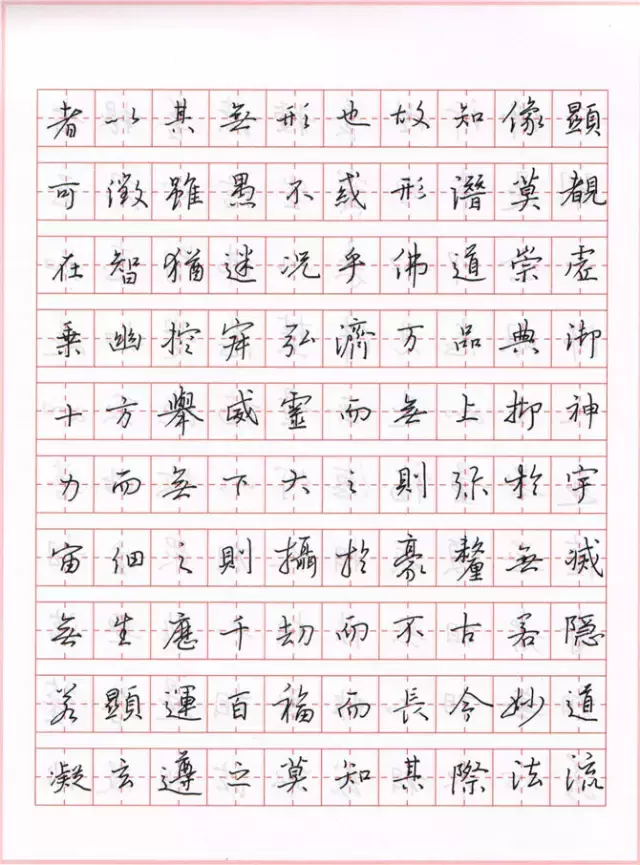 者以其無形也故知像顯
可徵雖愚不惑形潛莫覩
在智猶迷况乎佛道崇虛
乗幽控寂弘濟万品典御
十方舉威靈而無上抑神
力而無下大之則弥於宇
宙细之則攝於豪釐無滅
無生歷千劫而不古若隐
若顯運百福而長今妙道
凝玄遵之莫知其際法流